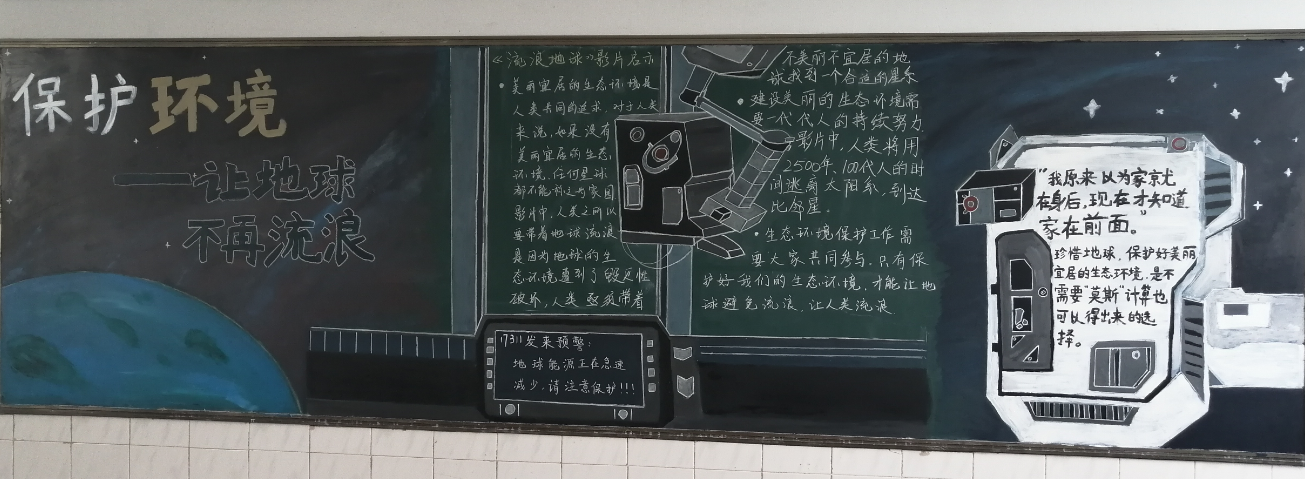 保护环境
——让地球
不再流浪
《流浪地球》影片启示
• 美丽宜居的生态环境是
人类共同的追求，对于人类
来说，如果没有
美丽宜居的生态
环境，任何星球
都不能称之为家园
影片中，人类之所以
要带着地球流浪
是因为地球的生
态环境遭到了毁灭性
破坏，人类亟须带着
不美丽不宜居的地
球找到一个合适的星系
• 建设美丽的生态环境需
要一代代人的持续努力
影片中，人类将用
2500年、100代人的时
间逃离太阳系，到达
比邻星。
• 生态环境保护工作需
要大家共同参与，只有保
护好我们的生态环境，才能让地
球避免流浪，让人类流浪
17311发来预警：
地球能源正在急速
减少，请注意保护!!!
"我原来以为家京尤
在身后，现在才知道
家在前面。"
珍惜地球，保护好美丽
宜居的生态环境，是不
需要"莫斯"计算也
可以得出来的选
择。